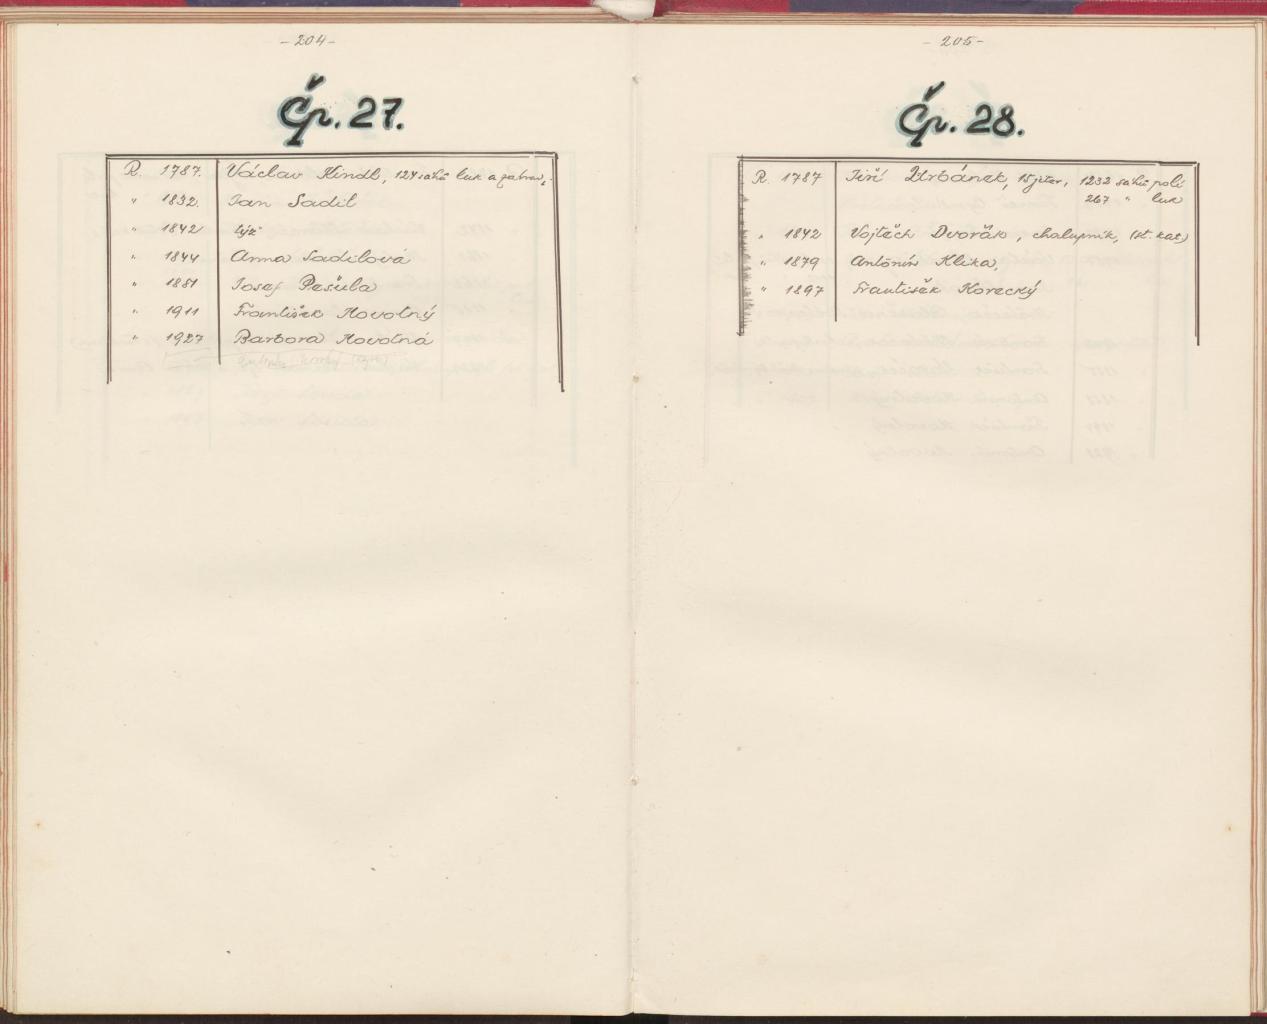 - 204 -
Čp. 27.
R. 1787. Václav Hindl, 124 sáhů luk a zahrad,
" 1832. Jan Sadil
" 1842 týž
" 1844 Anna Sadilová
" 1881 Josef Pešula
" 1911 František Novotný
" 1927 Barbora Novotná
- 205 -
Čp. 28.
R. 1787 Jiří Urbánek, 15 jiter, 1232 sáhů polí
267 " luk
" 1842 Vojtěch Dvořák, chalupník, (st. kat)
" 1879 Antonín Klika,
" 1897 František Korecký